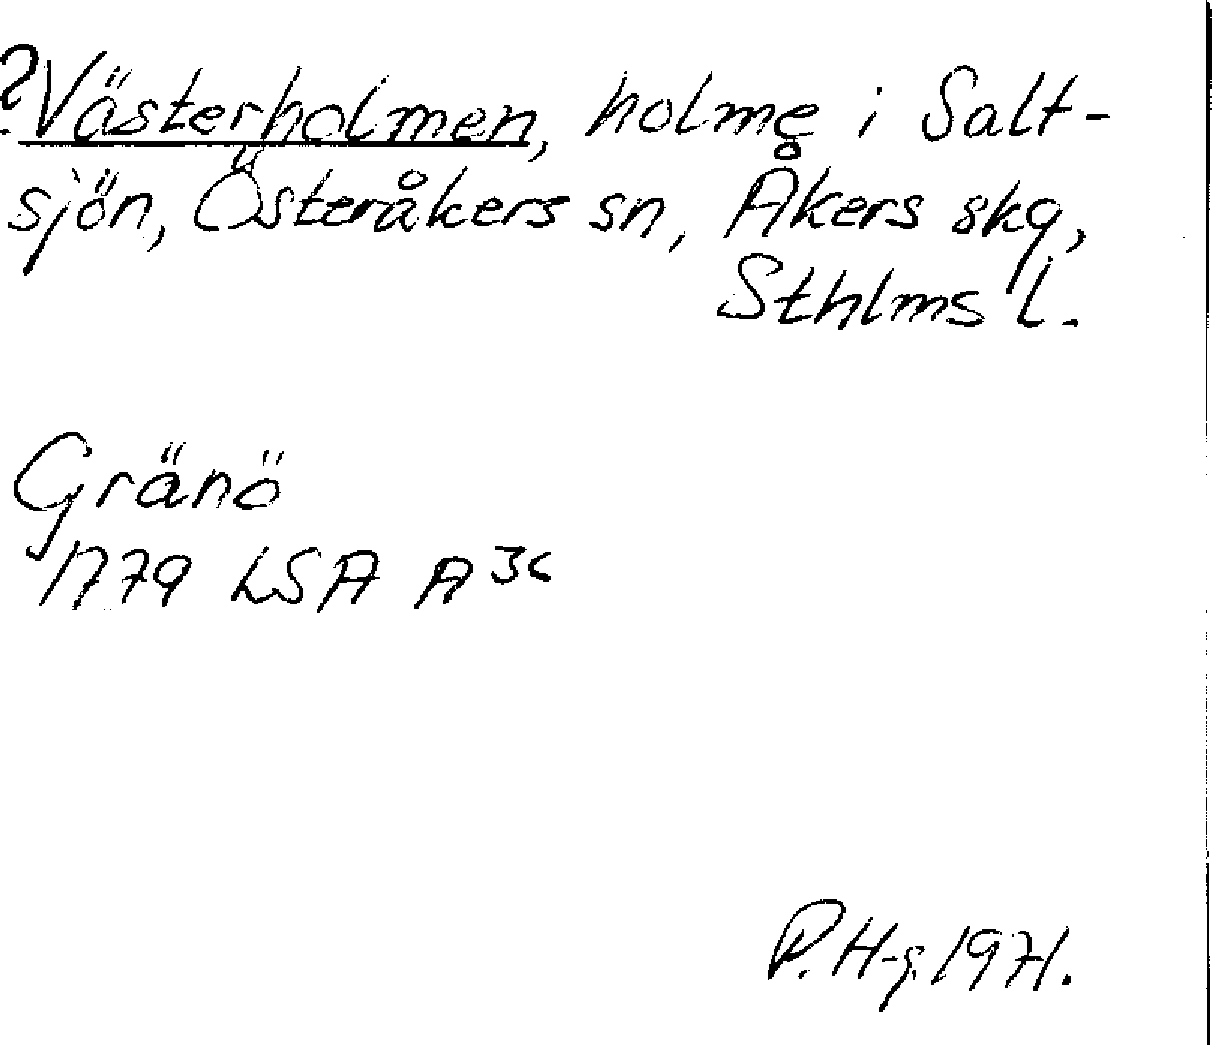 ?Västerholmen, holme i Salt-
sjön, Österåkers sn, Åkers skg,
Sthlms l.
Gränö
1779 LSA A 36
P. H-g. 1971.